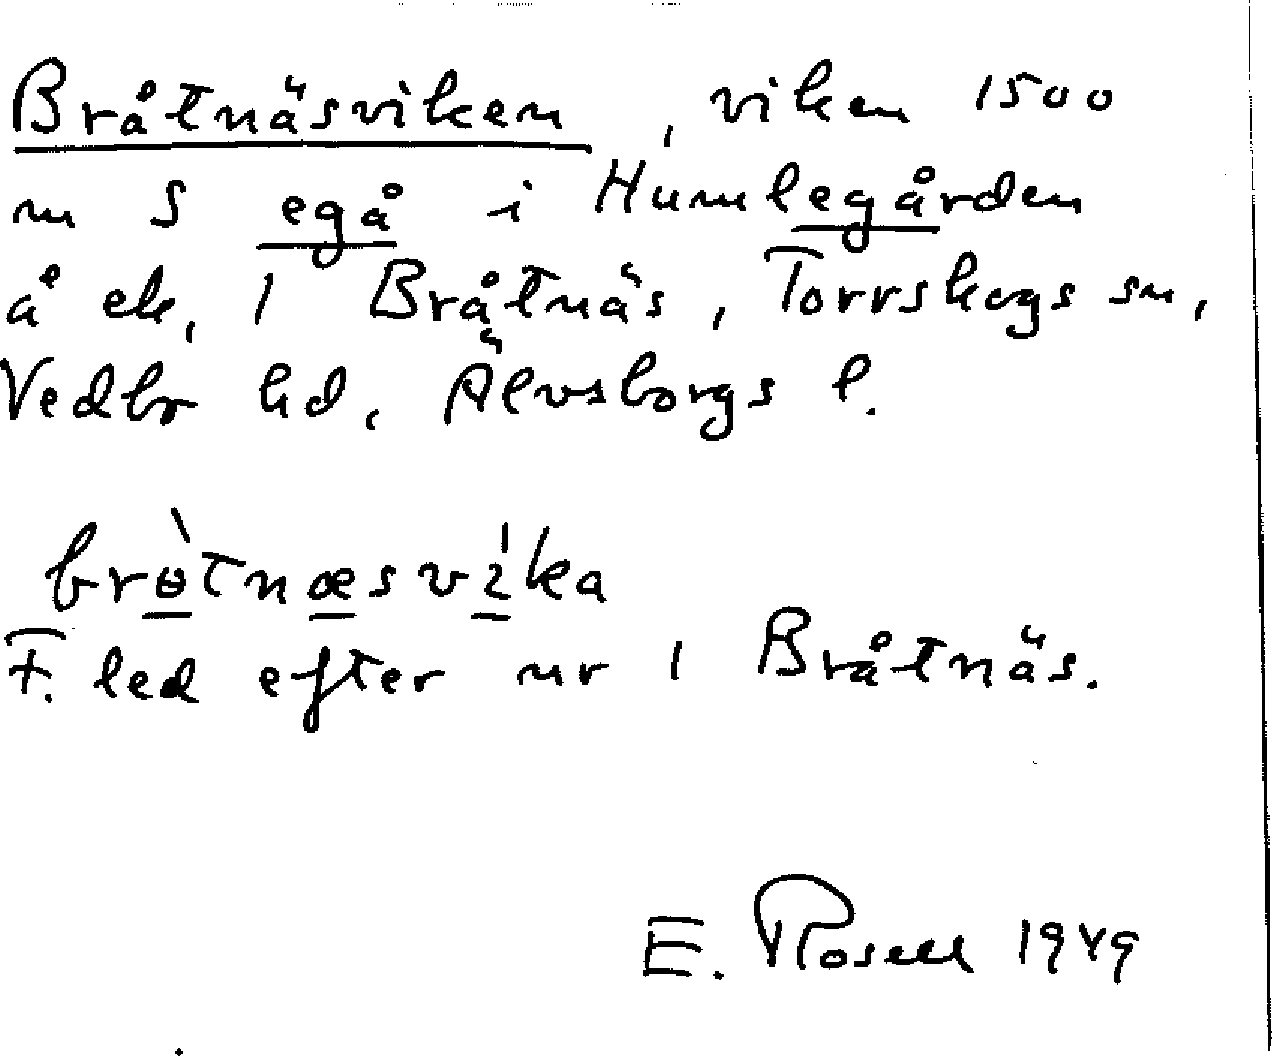 Bråtnäsviken, viken 1500
m S egå i Humlegården
å ek. 1 Bråtnäs, Torrskogs sn,
Vedbo hd, Älvsborgs l.
brɵ̀tnæsvíka
F. led efter nr 1 Bråtnäs.
E. Rosell 1949